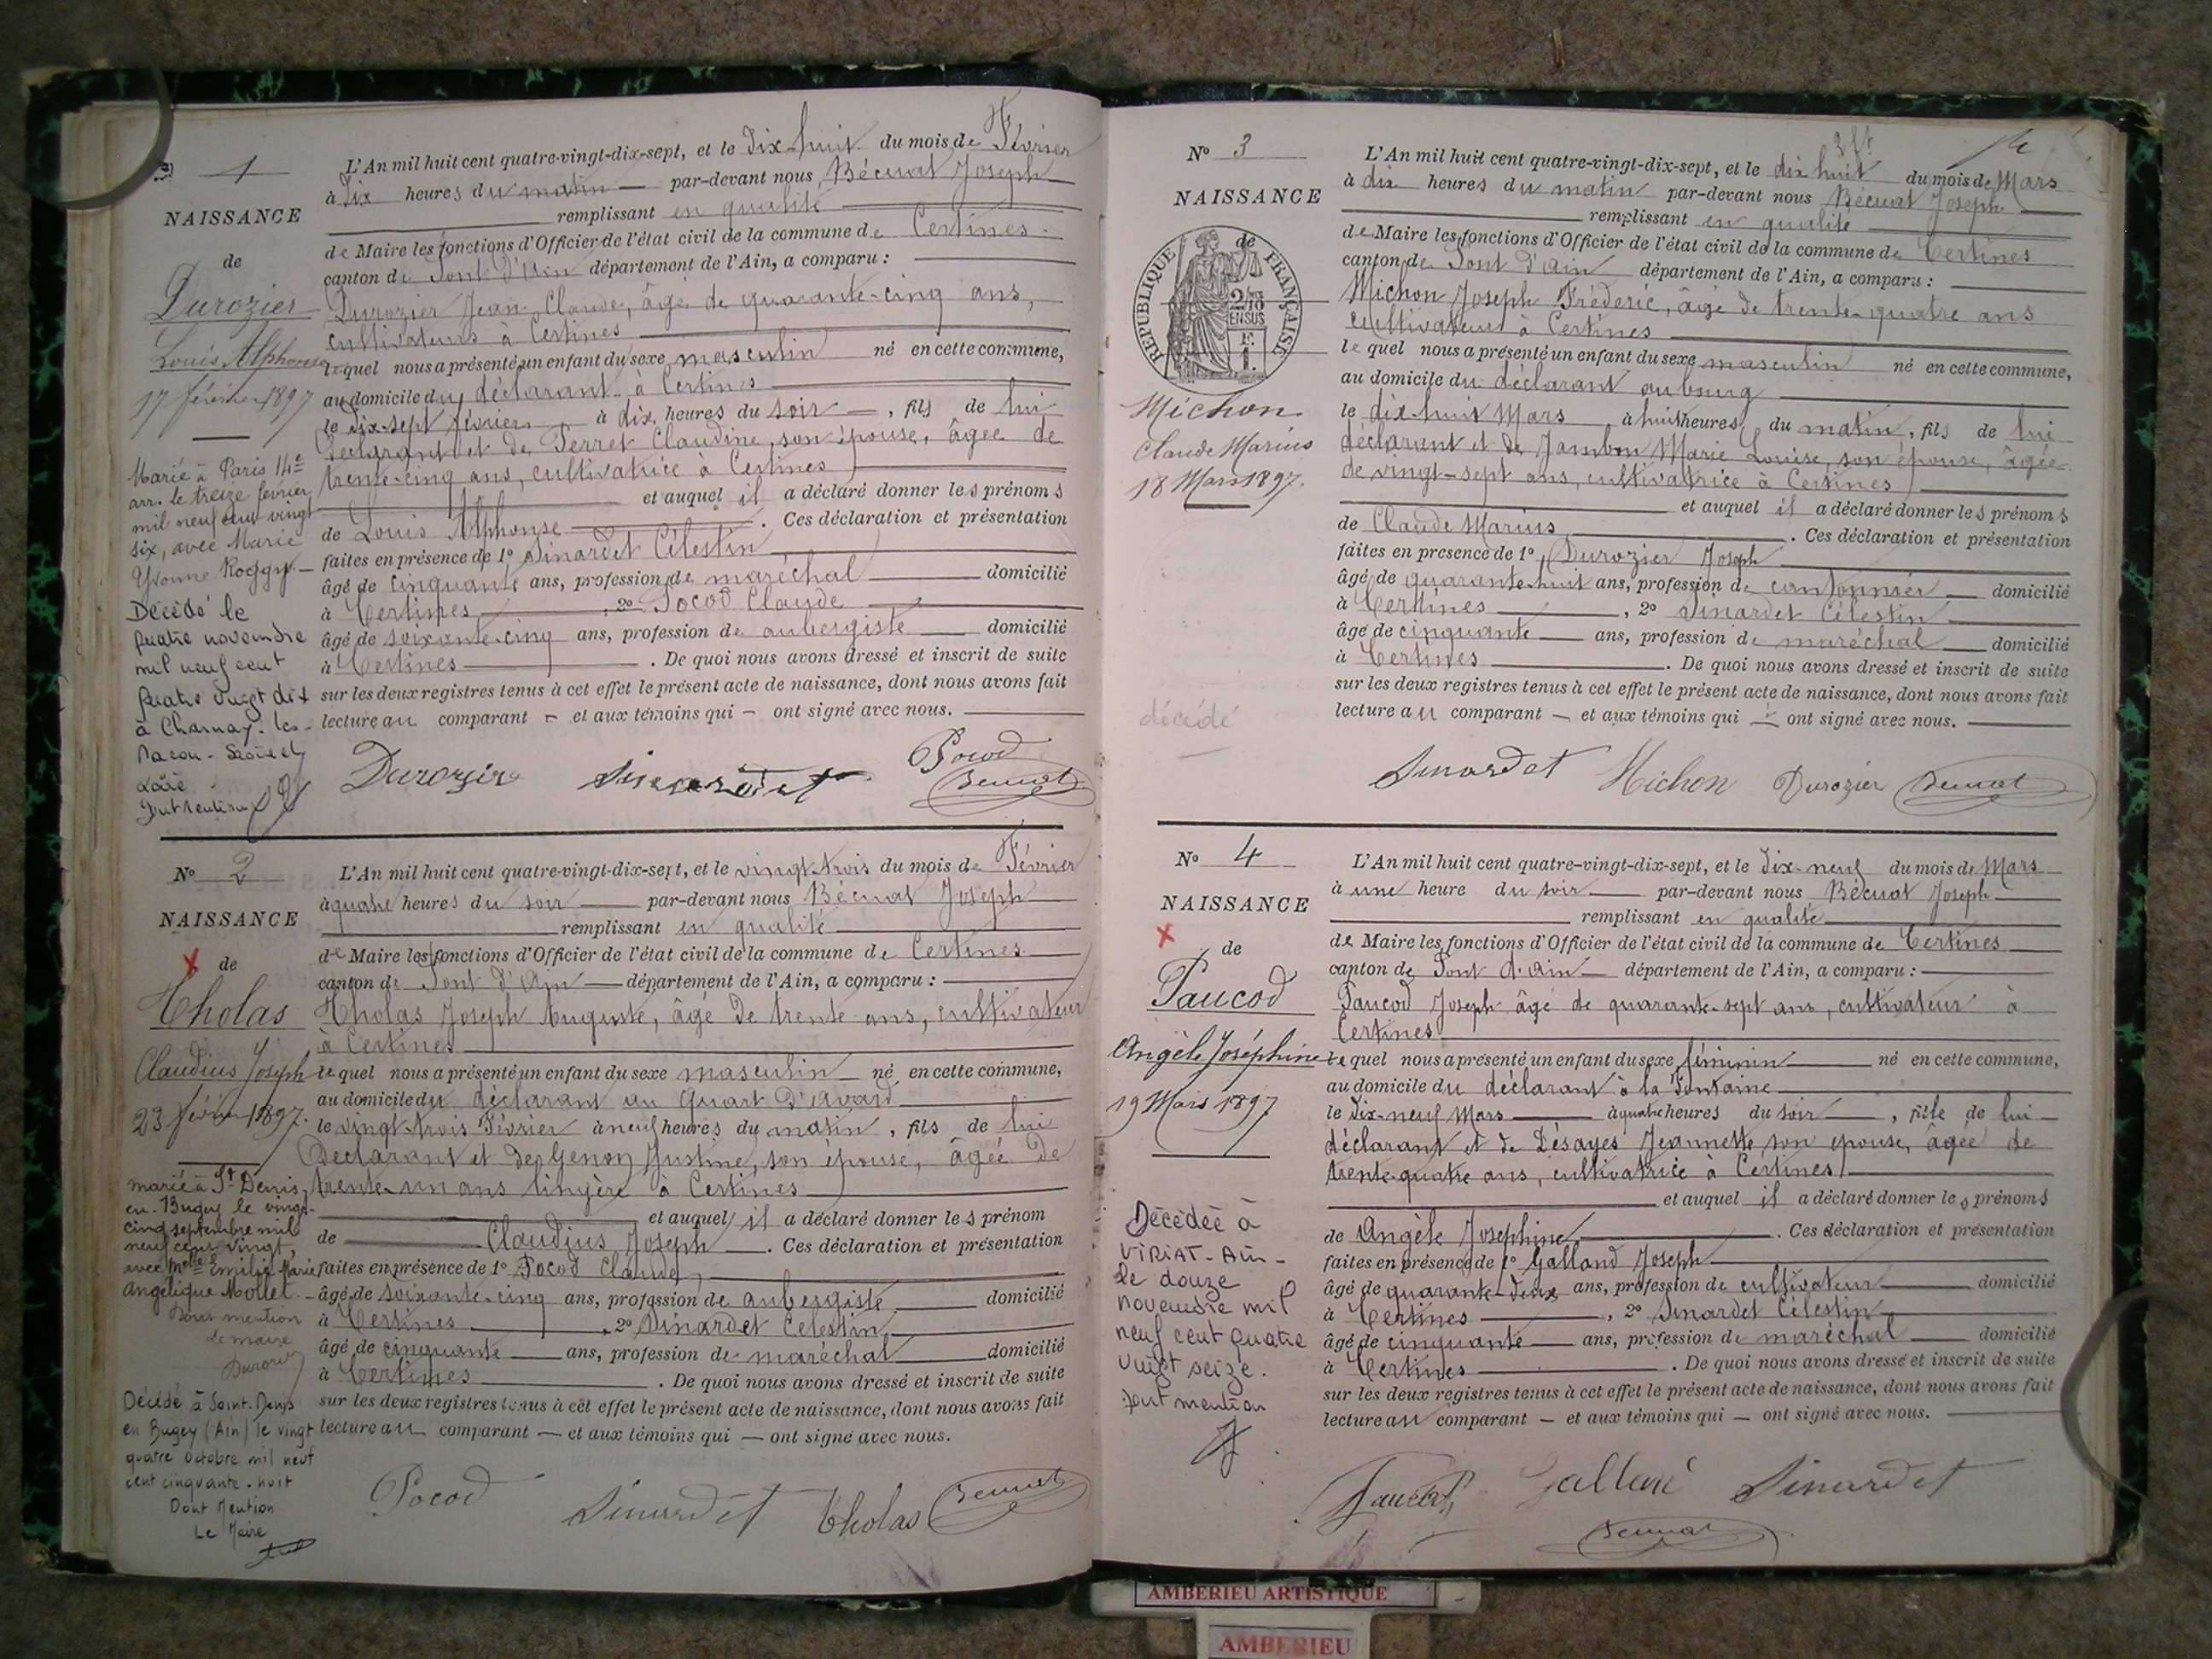 No 1
NAISSANCE
de
Durozier
Louis Alphonse
17 février 1897
Marié à Paris 14e
arr. le treize février
mil neuf cent vingt
six, avec Marie
Yvonne Roggy.
Décédé le
quatre novembre
mil neuf cent
quatre vingt dix
à Charnay-les-
Macon-Saône et
Loire
Dont mention
L'An mil huit cent quatre-vingt-dix-sept, et le dix-huit du mois de Février
à dix heures du matin par-devant nous Bécuat Joseph
remplissant en qualité
de Maire les fonctions d'Officier de l'état civil de la commune de Certines
canton de Pont d'Ain département de l'Ain, a comparu :
Durozier Jean Claude, âgé de quarante-cinq ans,
cultivateurs à Certines
lequel nous a présenté un enfant du sexe masculin né en cette commune,
au domicile du déclarant à Certines
le dix-sept février à dix heures du soir, fils de lui
déclarant et de Perret Claudine, son épouse, âgée de
trente-cinq ans, cultivatrice à Certines
et auquel il a déclaré donner les prénoms
de Louis Alphonse. Ces déclaration et présentation
faites en présence de 1° Sinardet Célestin
âgé de cinquante ans, profession de maréchal domicilié
à Certines, 2° Pocod Claude
âgé de soixante-cinq ans, profession de aubergiste domicilié
à Certines. De quoi nous avons dressé et inscrit de suite
sur les deux registres tenus à cet effet le présent acte de naissance, dont nous avons fait
lecture au comparant - et aux témoins qui - ont signé avec nous.
Durozier Sinardet Pocod
Bécuat
No 2
NAISSANCE
X de
Tholas
Claudius Joseph
23 février 1897.
marié à St Denis
en-Bugey le vingt-
cinq septembre mil
neuf cent vingt,
avec Melle Emilie Marie
Angélique Mollet.
Pour mention
le maire
Durozier
Décédé à Saint-Denis
en Bugey (Ain) le vingt
quatre Octobre mil neuf
cent cinquante-huit
Dont Mention
Le Maire
L'An mil huit cent quatre-vingt-dix-sept, et le vingt-trois du mois de Février
à quatre heures du soir par-devant nous Bécuat Joseph
remplissant en qualité
de Maire les fonctions d'Officier de l'état civil de la commune de Certines
canton de Pont d'Ain département de l'Ain, a comparu :
Tholas Joseph Auguste, âgé de trente ans, cultivateur
à Certines
lequel nous a présenté un enfant du sexe masculin né en cette commune,
au domicile du déclarant au Quart d'Avard
le vingt-trois Février à neuf heures du matin, fils de lui
Déclarant et de Genon Justine, son épouse, âgée de
trente-un ans lingère à Certines
et auquel il a déclaré donner les prénom
de Claudius Joseph. Ces déclaration et présentation
faites en présence de 1° Pocod Claude,
âgé de soixante-cinq ans, profession de aubergiste domicilié
à Certines, 2° Sinardet Célestin
âgé de cinquante ans, profession de maréchal domicilié
à Certines. De quoi nous avons dressé et inscrit de suite
sur les deux registres tenus à cet effet le présent acte de naissance, dont nous avons fait
lecture au comparant - et aux témoins qui - ont signé avec nous.
Pocod Sinardet Tholas Bécuat
No 3
NAISSANCE
de
REPUBLIQUE FRANÇAISE
2/10
EN SUS
F.
1.
Michon
Claude Marius
18 Mars 1897.
décédé
L'An mil huit cent quatre-vingt-dix-sept, et le dix huit du mois de Mars
à dix heures du matin par-devant nous Bécuat Joseph
remplissant en qualité
de Maire les fonctions d'Officier de l'état civil de la commune de Certines
canton de Pont d'Ain département de l'Ain, a comparu :
Michon Joseph Fréderic, âgé de trente-quatre ans
cultivateur à Certines
lequel nous a présenté un enfant du sexe masculin né en cette commune,
au domicile du déclarant au bourg
le dix-huit Mars à huit heures du matin, fils de lui
déclarant et de Jambon Marie Louise, son épouse, âgée
de vingt-sept ans, cultivatrice à Certines
et auquel il a déclaré donner les prénoms
de Claude Marius. Ces déclaration et présentation
faites en présence de 1° Durozier Joseph
âgé de quarante-huit ans, profession de cantonnier domicilié
à Certines, 2° Sinardet Célestin
âgé de cinquante ans, profession de maréchal domicilié
à Certines. De quoi nous avons dressé et inscrit de suite
sur les deux registres tenus à cet effet le présent acte de naissance, dont nous avons fait
lecture au comparant - et aux témoins qui - ont signé avec nous.
Sinardet Michon Durozier Bécuat
No 4
NAISSANCE
X de
Paucod
Angèle Joséphine
19 Mars 1897
Décédée à
VIRIAT-Ain-
le douze
novembre mil
neuf cent quatre
vingt seize.
Dont mention
L'An mil huit cent quatre-vingt-dix-sept, et le dix-neuf du mois de Mars
à une heure du soir par-devant nous Bécuat Joseph
remplissant en qualité
de Maire les fonctions d'Officier de l'état civil de la commune de Certines
canton de Pont d'Ain département de l'Ain, a comparu :
Paucod Joseph âgé de quarante-sept ans, cultivateur à
Certines
lequel nous a présenté un enfant du sexe féminin né en cette commune,
au domicile du déclarant à la Fontaine
le dix-neuf Mars à quatre heures du soir, fille de lui
déclarant et de Désayes Jeannette son épouse, âgée de
trente-quatre ans, cultivatrice à Certines
et auquel il a déclaré donner les prénoms
de Angèle Josephine. Ces déclaration et présentation
faites en présence de 1° Galland Joseph
âgé de quarante-deux ans, profession de cultivateur domicilié
à Certines, 2° Sinardet Célestin
âgé de cinquante ans, profession de maréchal domicilié
à Certines. De quoi nous avons dressé et inscrit de suite
sur les deux registres tenus à cet effet le présent acte de naissance, dont nous avons fait
lecture au comparant - et aux témoins qui - ont signé avec nous.
Paucod Galland Sinardet
Bécuat
AMBERIEU ARTISTIQUE
AMBERIEU